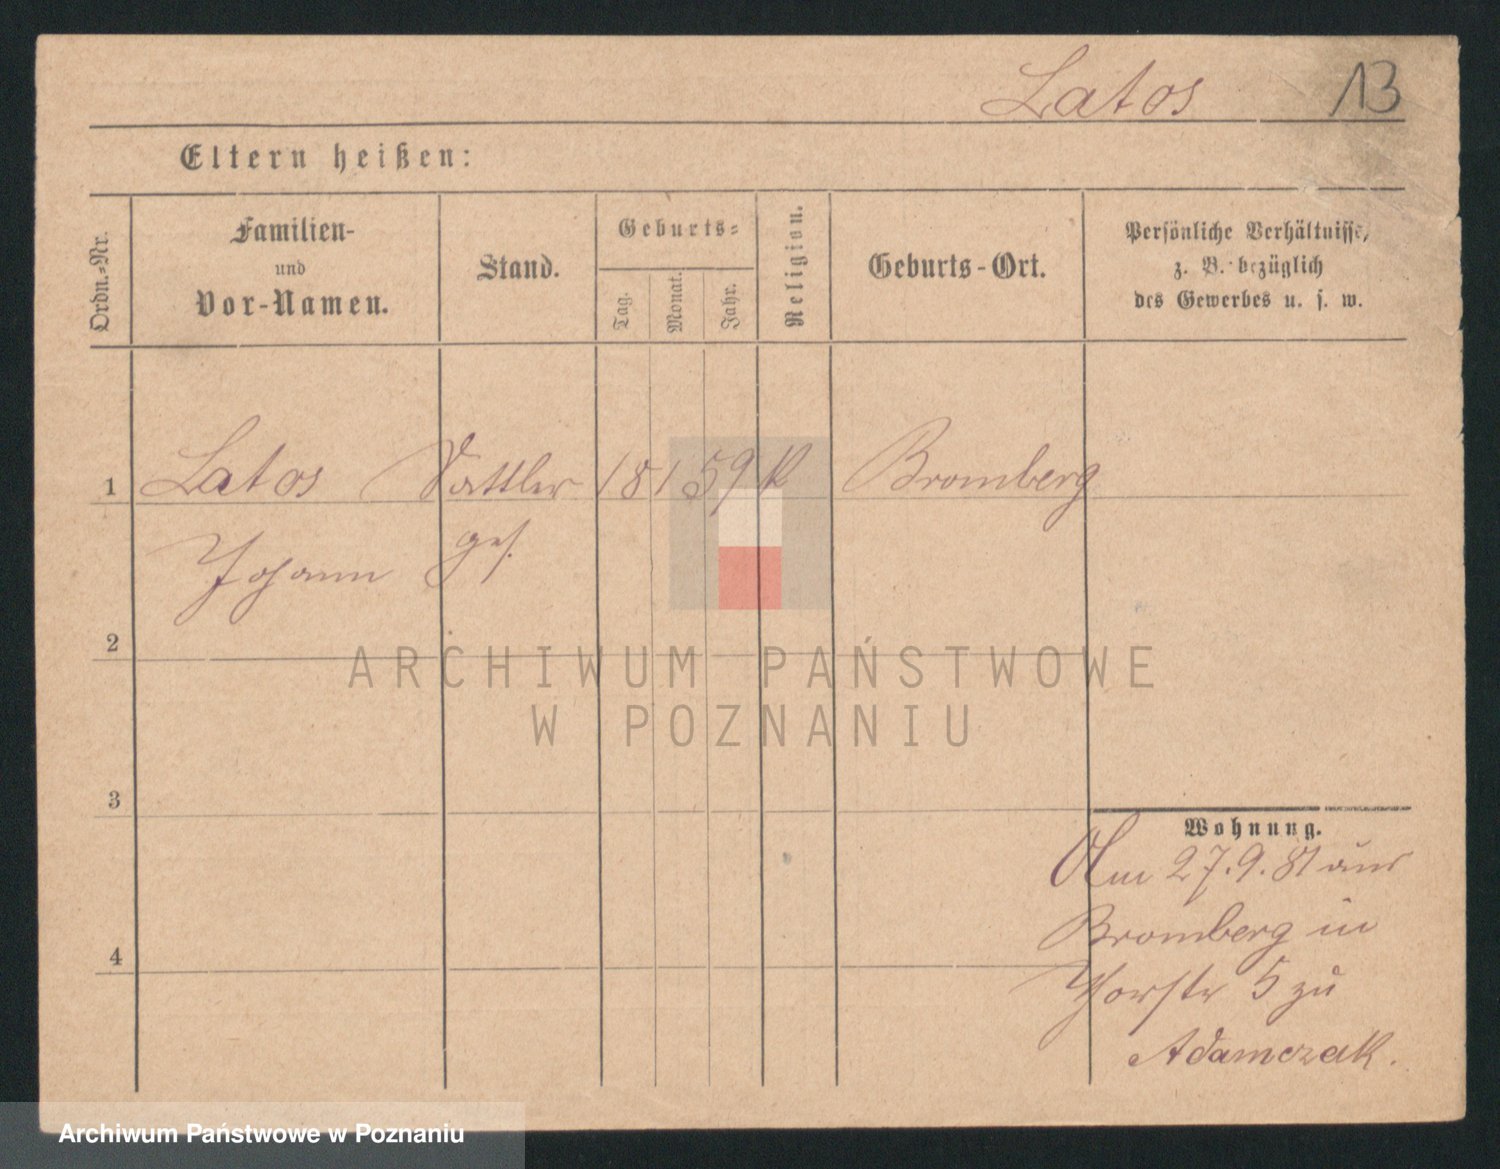 Latos 13
Eltern heißen:
Ordn.-Nr.
Familien-
und
Vor-Namen.
Stand.
Geburts-
Tag.
Monat.
Jahr.
Religion.
Geburts-Ort.
Persönliche Verhältnisse,
z. B. bezüglich
des Gewerbes u. s. w.
1 Latos Sattler 18 1 59 K Bromberg
Johann ges.
2
ARCHIWUM PAŃSTWOWE
W POZNANIU
3
Wohnung.
Am 27.9.81 aus
Bromberg in
4
5 zu
Adamczak.
Archiwum Państwowe w Poznaniu